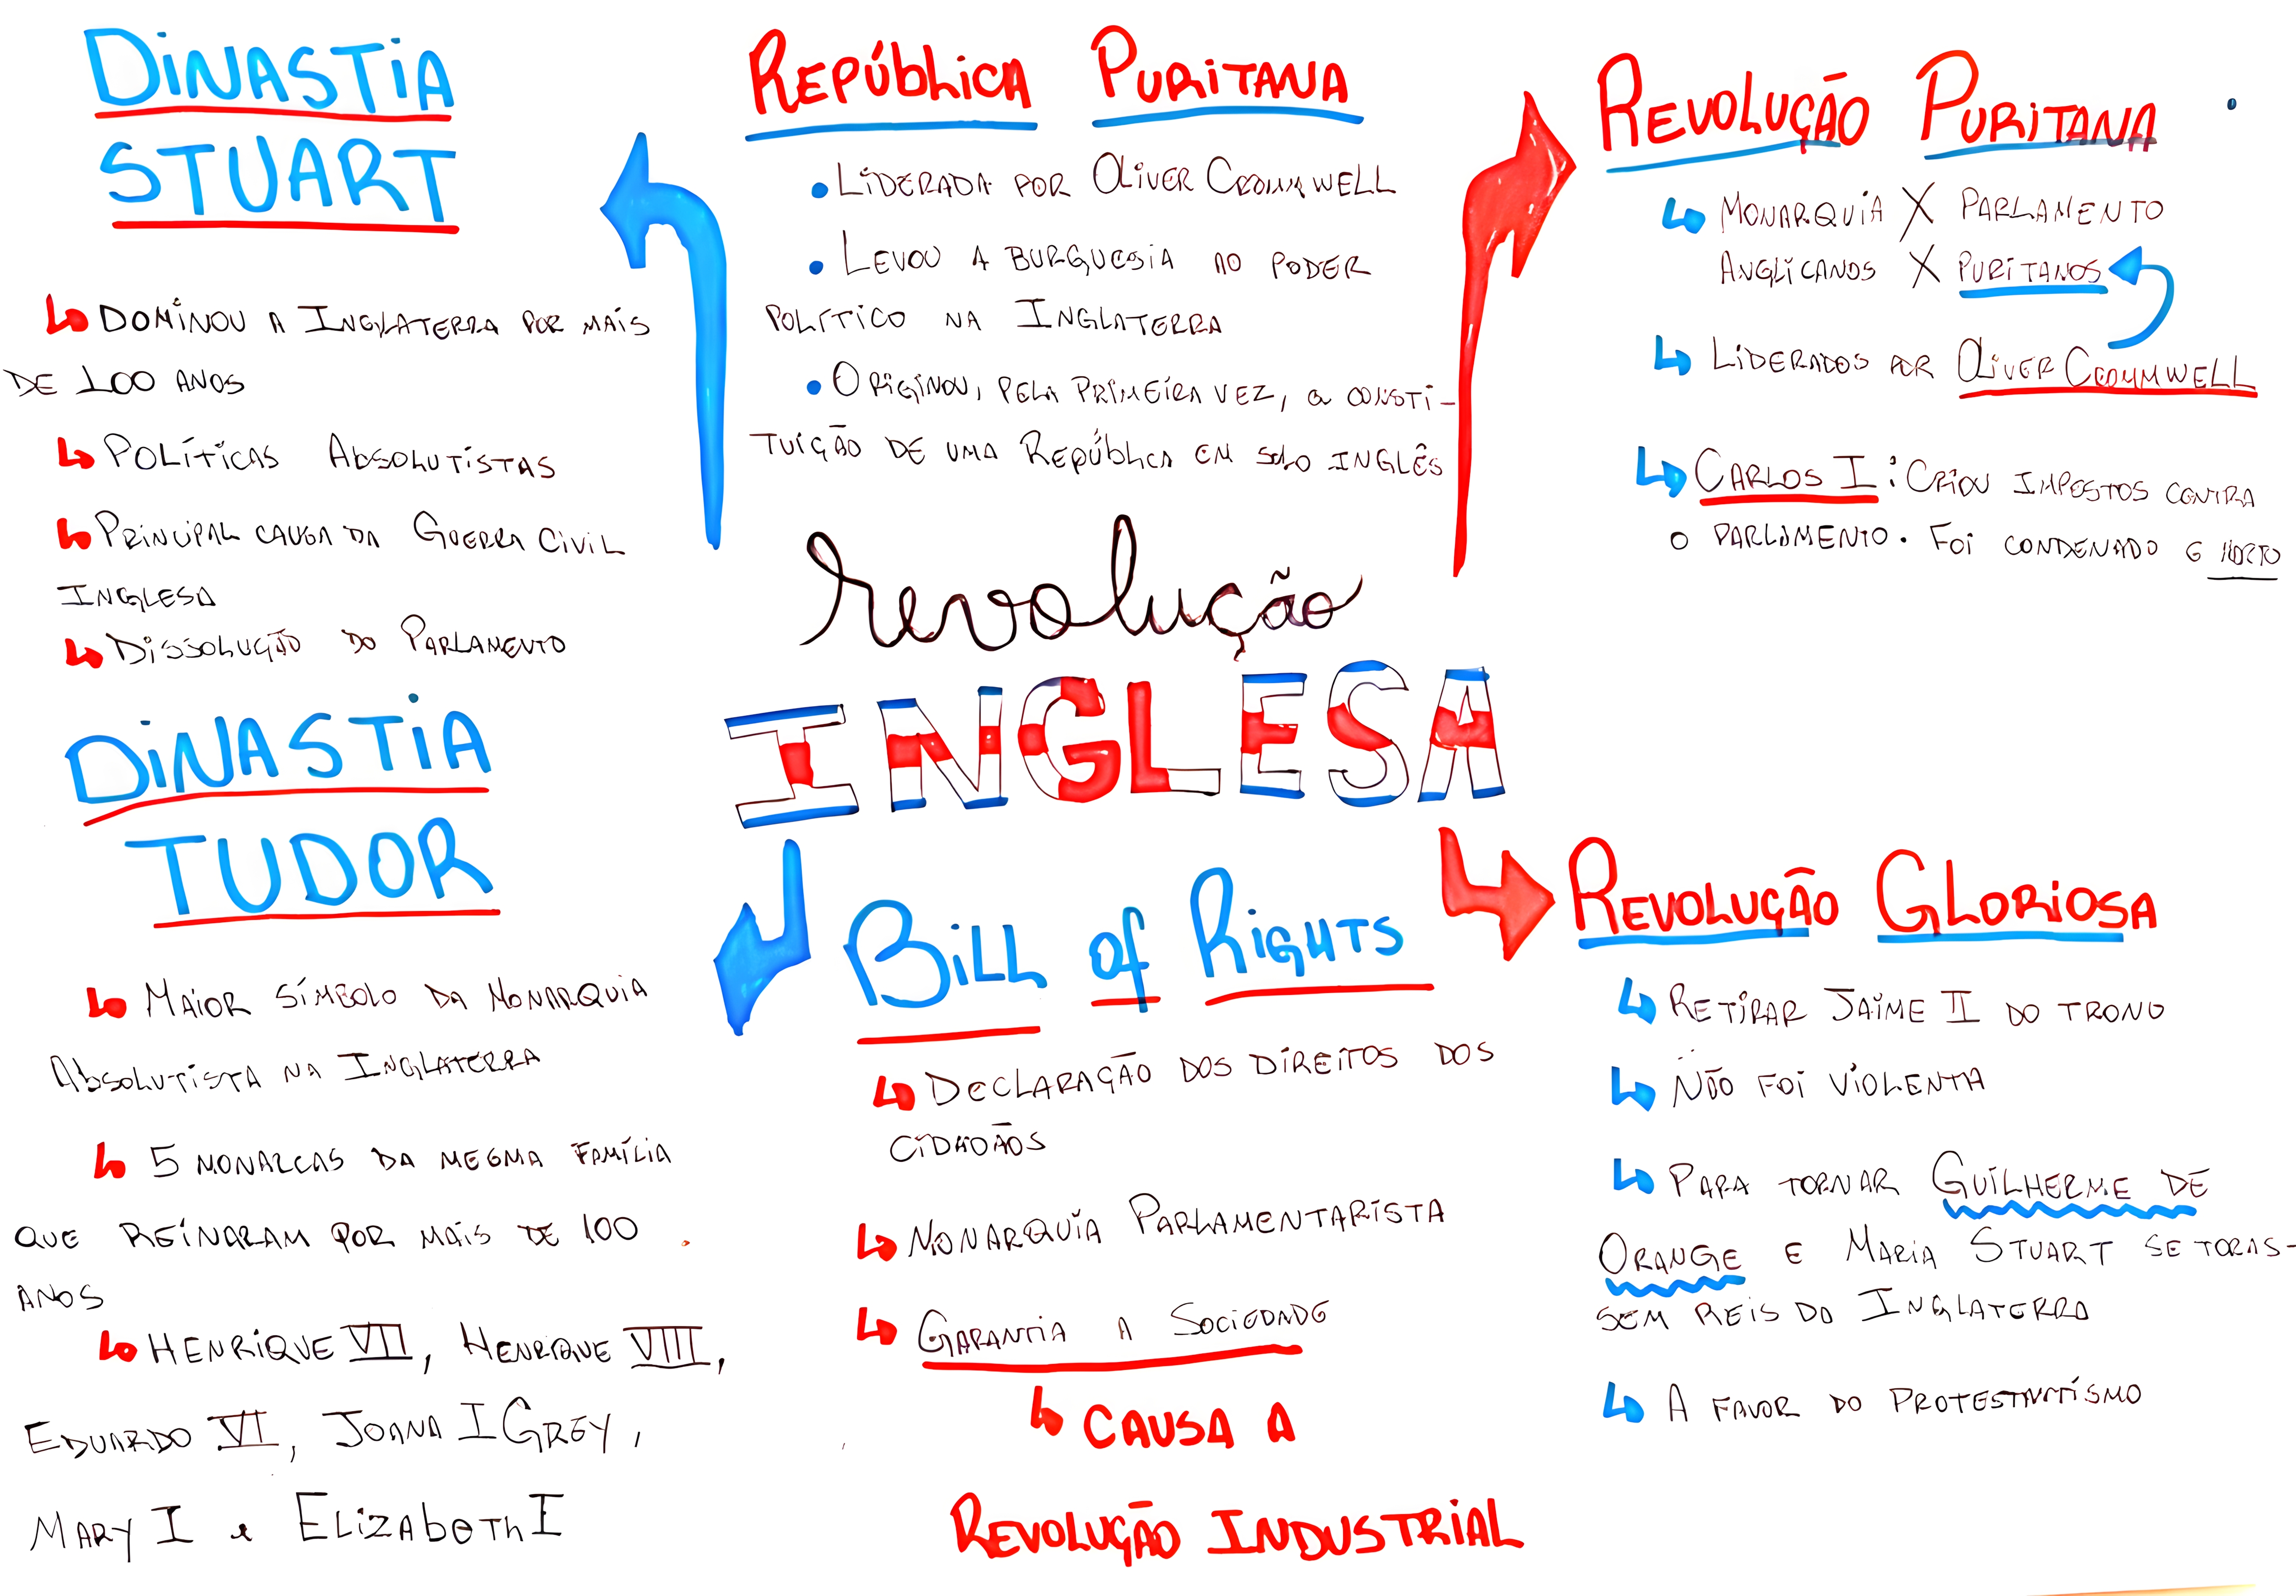 DINASTIA
STUART
DOMINOU A INGLATERRA POR MAIS
DE 100 ANOS
POLÍTICAS ABSOLUTISTAS
PRINCIPAL CAUSA DA GUERRA CIVIL
INGLESA
DISSOLUÇÃO DO PARLAMENTO
DINASTIA
TUDOR
MAIOR SÍMBOLO DA MONARQUIA
ABSOLUTISTA NA INGLATERRA
5 MONARCAS DA MESMA FAMÍLIA
QUE REINARAM POR MAIS DE 100
ANOS
HENRIQUE VII, HENRIQUE VIII,
EDUARDO VI, JOANA I GREY,
MARY I e ELIZABETH I
REPÚBLICA PURITANA
• LIDERADA POR OLIVER CROMMWELL
• LEVOU A BURGUESIA AO PODER
POLÍTICO NA INGLATERRA
• ORIGINOU, PELA PRIMEIRA VEZ, a CONSTI-
TUIÇÃO DE UMA REPÚBLICA EM SOLO INGLÊS
revolução
INGLESA
BILL of RIGHTS
DECLARAÇÃO DOS DIREITOS DOS
CIDADÃOS
MONARQUIA PARLAMENTARISTA
GARANTIA A SOCIEDADE
CAUSA A
REVOLUÇÃO INDUSTRIAL
REVOLUÇÃO PURITANA
MONARQUIA X PARLAMENTO
ANGLICANOS X PURITANOS
LIDERADOS POR OLIVER CROMMWELL
CARLOS I: CRIOU IMPOSTOS CONTRA
O PARLAMENTO. FOI CONDENADO E MORTO
REVOLUÇÃO GLORIOSA
RETIRAR JAIME II DO TRONO
NÃO FOI VIOLENTA
PARA TORNAR GUILHERME DE
ORANGE E MARIA STUART SE TORAS-
SEM REIS DA INGLATERRA
A FAVOR DO PROTESTANTISMO